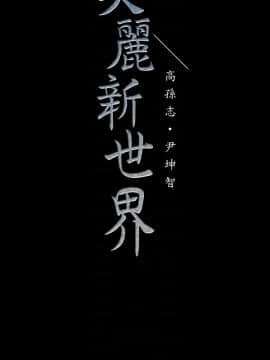 麗新世界
高孫志·尹坤智